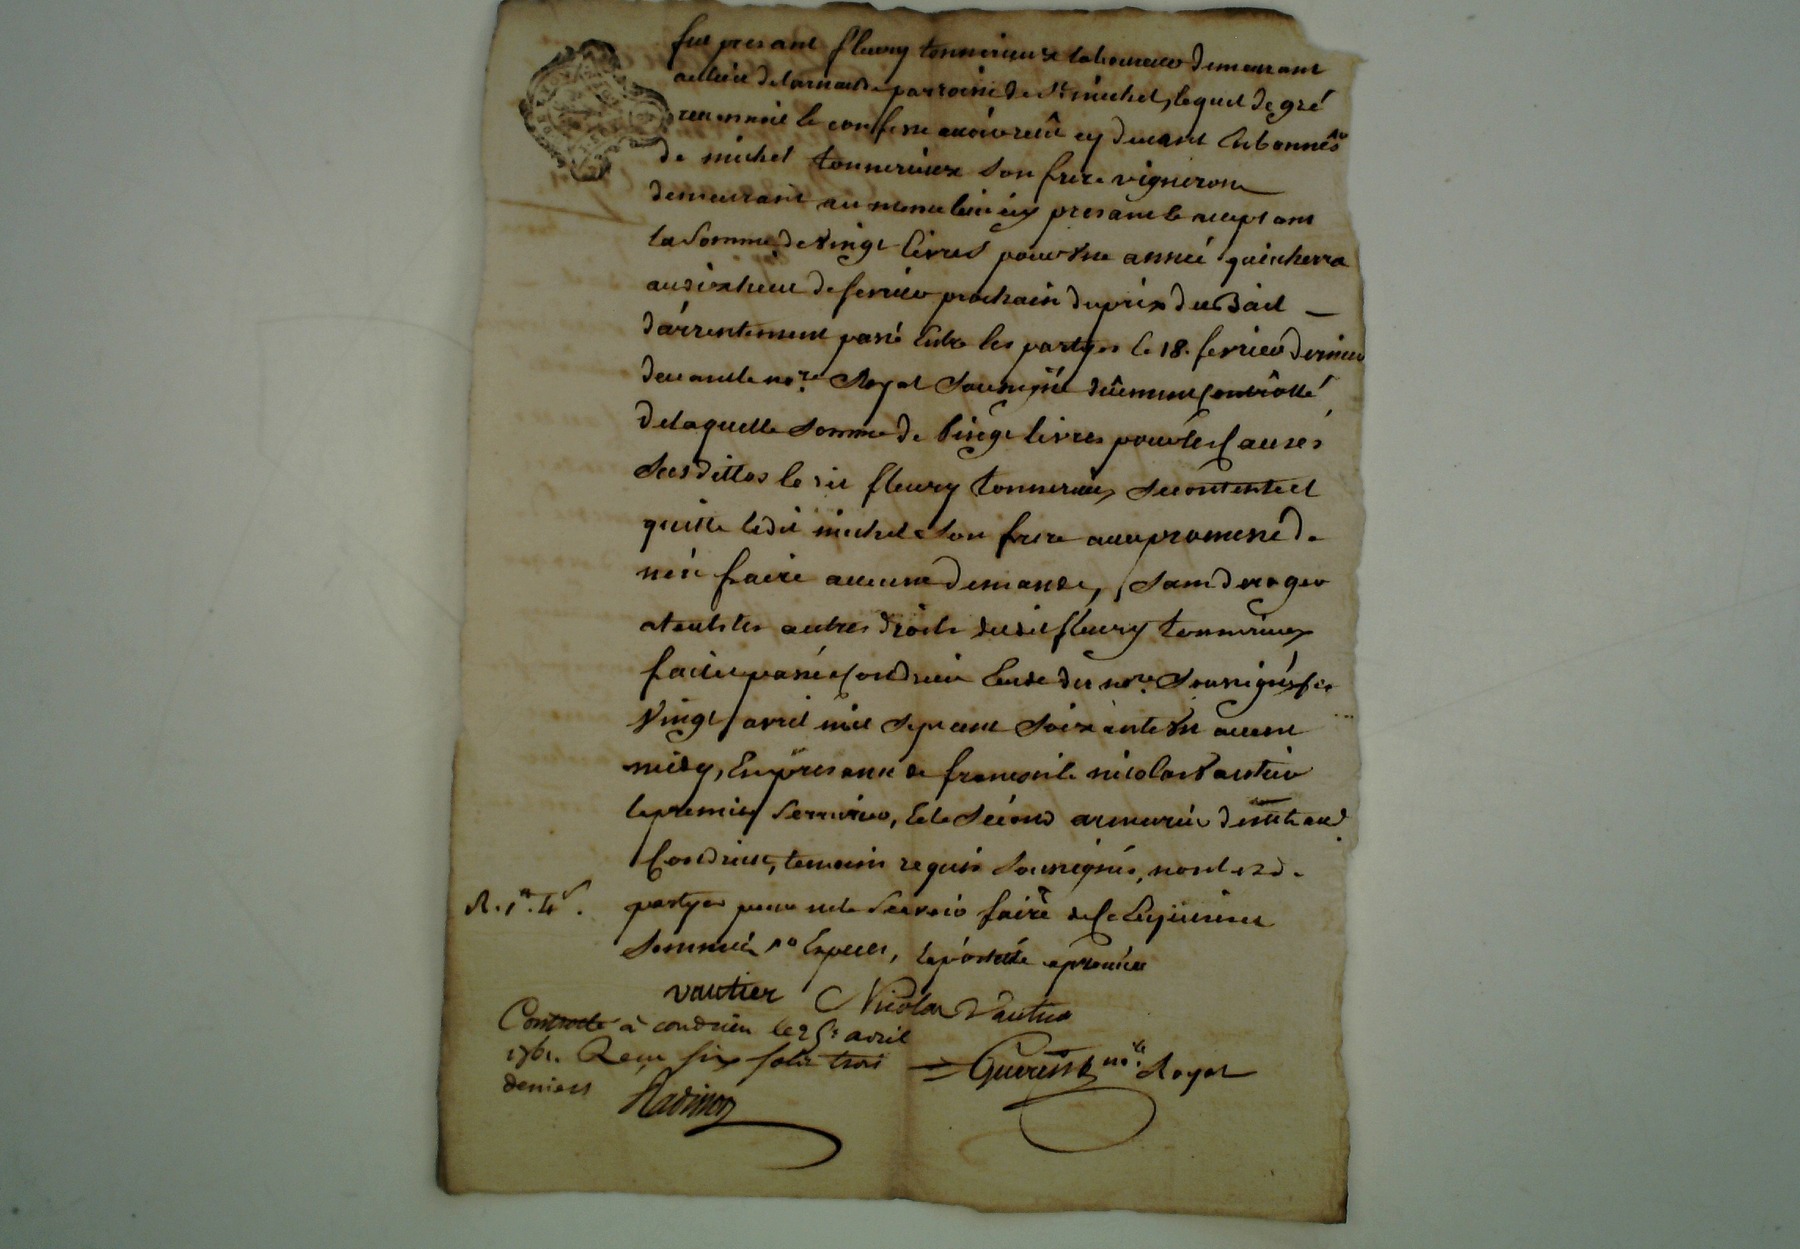 fut presant fleury tonnerieux laboureur demeurant
au lieu de parroisse de St michel, lequel de gré
reconnoit et confesse avoir reçû cy devant en bonnes
de michel tonnerieux son frere vigneron
demeurant au meme lieu icy presant et aceptant
la somme de vingt livres pour une année qui echerra
au dixhuit de fevrier prochain du prix du Bail
d'arrentement passé entre les partyes le 18. fevrier dernier
devant le nore. Royal soussigné dûement Controllé
de laquelle somme de vingt livres pour les Causes
susdittes le dit fleury tonnerieux se contente et
quitte ledit michel son frere avec promesse de
n'en faire aucune demande, sans deroger
a touts les autres droits dudit fleury tonnerieux
fait et passé a Condrieu etude du nore. soussigné le
vingt avril mil sept cent soixante un avant
midy, En presance de francois et nicolas Vautier
le premier serrurier, et le second armurier de
Condrieu, temoins requis soussignés, non les d.
partyes pour ne le scavoir faire de ce Enquis et
sommés
R. 1#. 4s.
vautier Nicolas Vautier
Controllé à condrieu le 25e avril
1761. Reçu six sols trois
deniers
nore. Royal